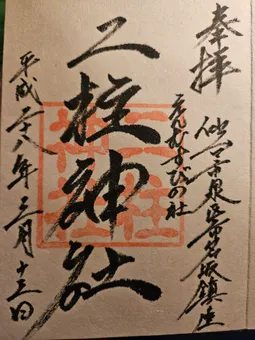 奉拝
仙台市泉区市名坂鎮座
えんむすびの社
二柱神社
平成二十八年三月十三日
二柱
神社